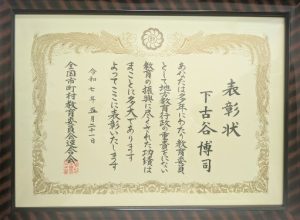 表彰状
下古谷博司
あなたは多年にわたり教育委員
として地方教育行政の重責をにない
教育の振興に尽くされた功績は
まことに多大であります
よってここに表彰いたします
令和七年五月三十一日
全国市町村教育委員会連合会